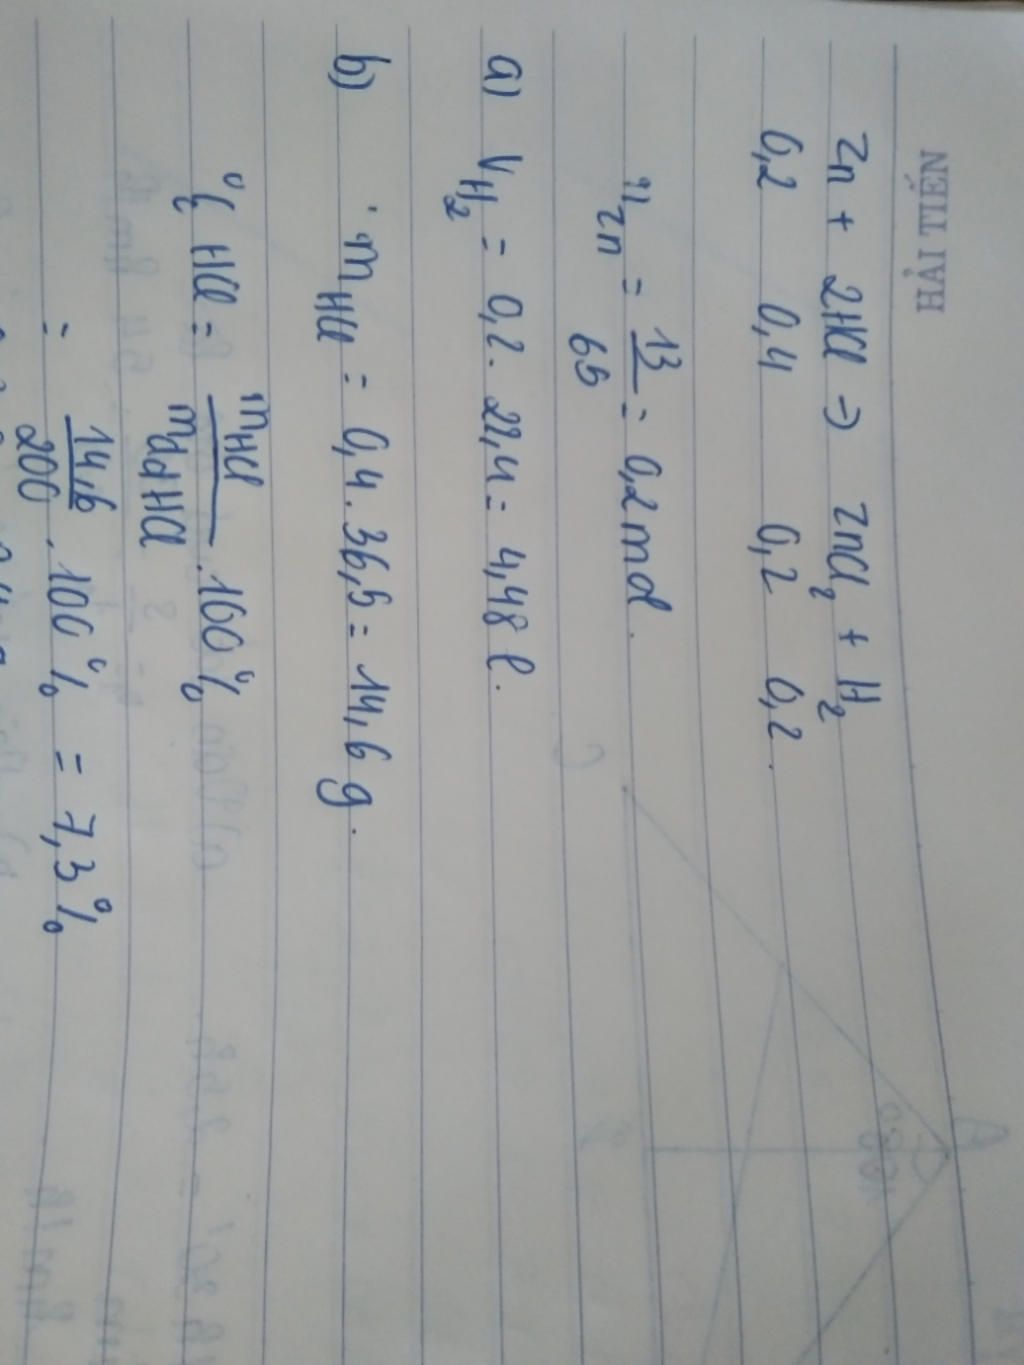 HẢI TIẾN
Zn + 2HCl => ZnCl2 + H2
0,2 0,4 0,2 0,2.
nZn = 13/65 = 0,2 mol.
a) VH2 = 0,2 . 22,4 = 4,48 l.
b) . mHCl = 0,4 . 36,5 = 14,6 g.
% HCl = mHCl/mddHCl . 100%
= 14,6/200 . 100% = 7,3%